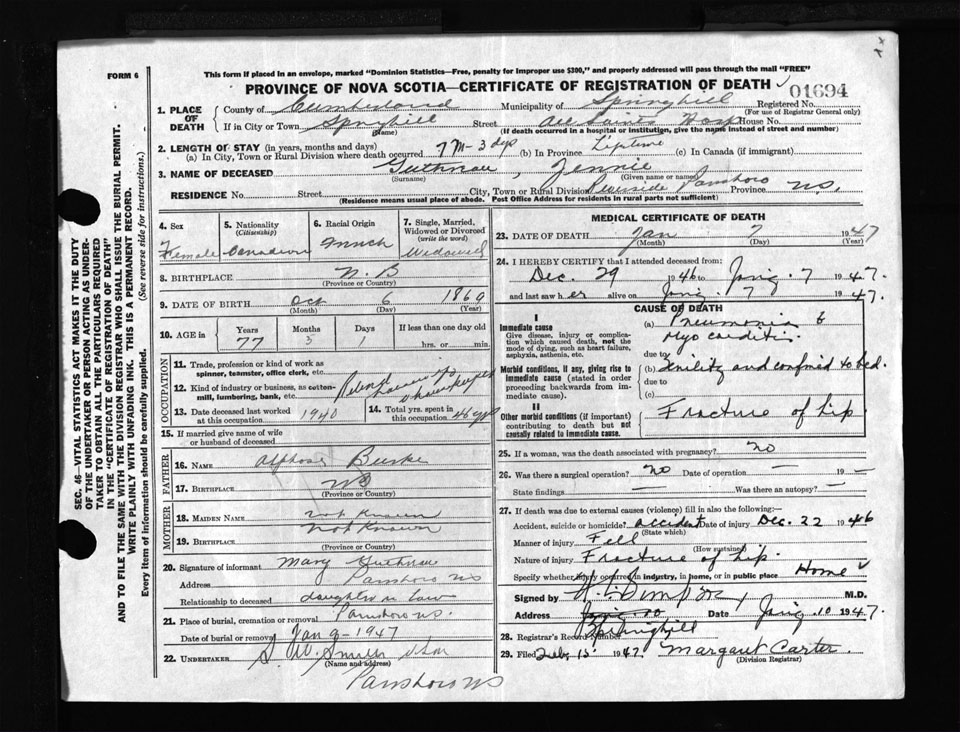 FORM 6
This form if placed in an envelope, marked "Dominion Statistics—Free, penalty for improper use $300," and properly addressed will pass through the mail "FREE"
PROVINCE OF NOVA SCOTIA—CERTIFICATE OF REGISTRATION OF DEATH
01694
1. PLACE OF DEATH
County of Cumberland Municipality of Springhill Registered No.
(For use of Registrar General only)
If in City or Town Springhill Street All Saints Hosp House No.
(Name) (If death occurred in a hospital or institution, give the name instead of street and number)
2. LENGTH OF STAY (in years, months and days)
(a) In City, Town or Rural Division where death occurred 7 M - 3 dys (b) In Province Liptime (c) In Canada (if immigrant)
3. NAME OF DECEASED , Jennie
(Surname) (Given name or names)
RESIDENCE No. Street City, Town or Rural Division Parrsboro Province N.S.
(Residence means usual place of abode. Post Office Address for residents in rural parts not sufficient)
4. Sex
Female
5. Nationality
(Citizenship)
Canadian
6. Racial Origin
7. Single, Married, Widowed or Divorced
(write the word)
Widowed
8. BIRTHPLACE N.B
(Province or Country)
9. DATE OF BIRTH Oct 6 1869
(Month) (Day) (Year)
10. AGE in
Years Months Days If less than one day old
77 3 1 hrs. or min.
OCCUPATION
11. Trade, profession or kind of work as spinner, teamster, office clerk, etc.
12. Kind of industry or business, as cotton-mill, lumbering, bank, etc.
13. Date deceased last worked at this occupation 1940
14. Total yrs. spent in this occupation 46 yrs
15. If married give name of wife or husband of deceased
FATHER
16. NAME Burke
17. BIRTHPLACE
(Province or Country)
MOTHER
18. MAIDEN NAME not Known
19. BIRTHPLACE not Known
(Province or Country)
20. Signature of informant Mary
Address Parrsboro NS
Relationship to deceased daughter in law
21. Place of burial, cremation or removal Parrsboro N.S.
Date of burial or removal Jan 9 - 1947
22. UNDERTAKER S. W. Smith
(Name and address)
Parrsboro NS
MEDICAL CERTIFICATE OF DEATH
23. DATE OF DEATH Jan 7 1947
(Month) (Day) (Year)
24. I HEREBY CERTIFY that I attended deceased from:
Dec. 29 1946 to 7 1947.
and last saw her alive on 7 1947.
CAUSE OF DEATH
I
Immediate cause
Give disease, injury or complication which caused death, not the mode of dying, such as heart failure, asphyxia, asthenia, etc.
(a) Pneumonia &
Myocarditis.
due to
Morbid conditions, if any, giving rise to immediate cause (stated in order proceeding backwards from immediate cause).
(b) Senility and confined to bed.
due to
(c)
II
Other morbid conditions (if important) contributing to death but not causally related to immediate cause.
Fracture of hip
25. If a woman, was the death associated with pregnancy? no
26. Was there a surgical operation? no Date of operation — 19 —
State findings — Was there an autopsy? —
27. If death was due to external causes (violence) fill in also the following:—
Accident, suicide or homicide? accident Date of injury Dec. 22 1946
(State which)
Manner of injury Fell
(How sustained)
Nature of injury Fracture of hip.
Specify whether injury occurred in industry, in home, or in public place Home
Signed by Simpson M.D.
Address Springhill Date 10 1947.
28. Registrar's Record Number
29. Filed Feb 15 1947. Margaret Carter.
(Division Registrar)
SEC. 46—VITAL STATISTICS ACT MAKES IT THE DUTY
OF THE UNDERTAKER OR PERSON ACTING AS UNDERTAKER TO OBTAIN ALL THE PARTICULARS REQUIRED
IN THE "CERTIFICATE OF REGISTRATION OF DEATH"
AND TO FILE THE SAME WITH THE DIVISION REGISTRAR WHO SHALL ISSUE THE BURIAL PERMIT.
WRITE PLAINLY WITH UNFADING INK. THIS IS A PERMANENT RECORD.
Every item of information should be carefully supplied. (See reverse side for instructions.)